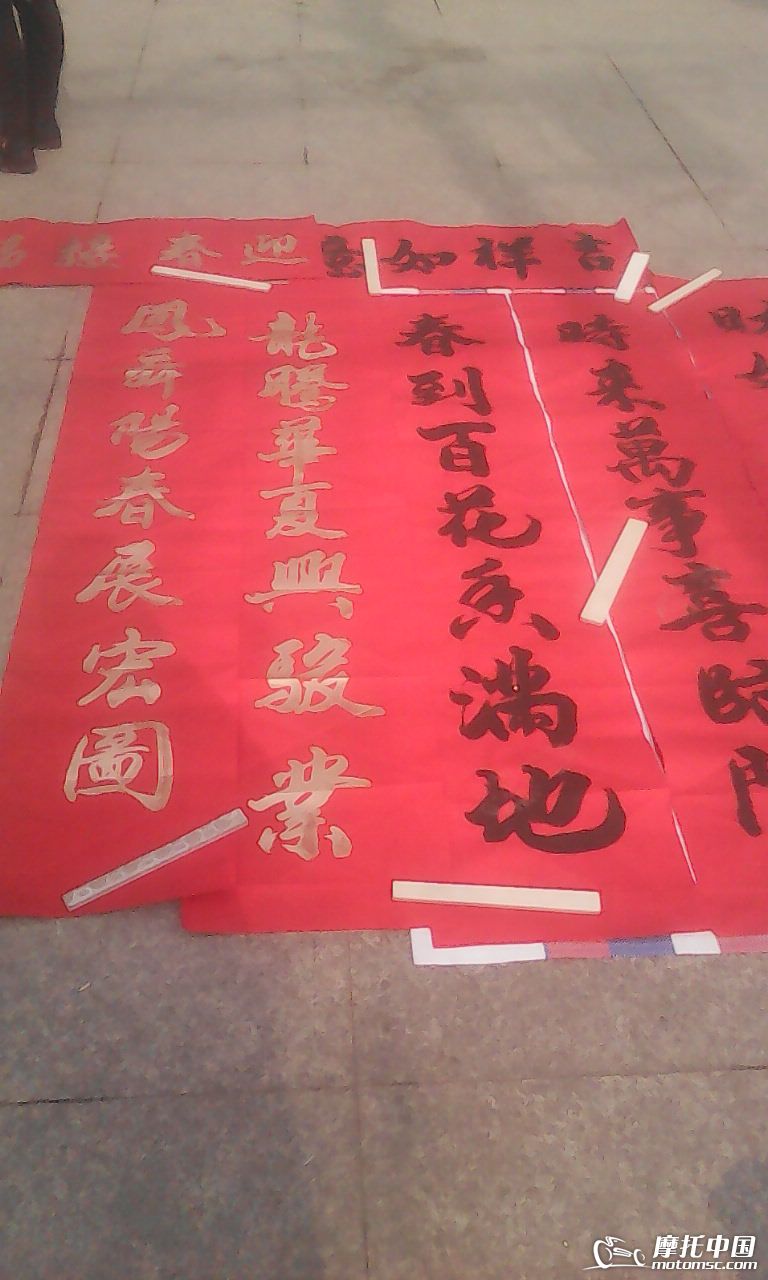 吉祥如意
迎春接福
時來萬事喜臨門
春到百花香滿地
龍騰華夏興駿業
鳳舞陽春展宏圖
摩托中国
motomsc.com